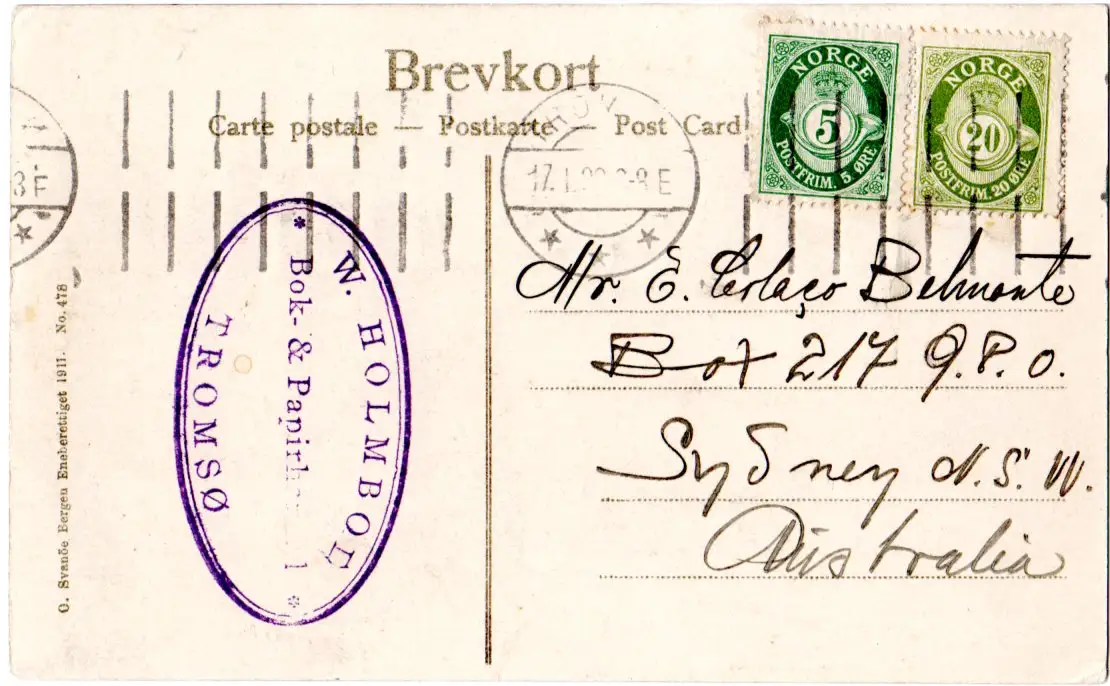 Brevkort
Carte postale — Postkarte — Post Card
NORGE
5
POSTFRIM. 5 ØRE
NORGE
20
POSTFRIM. 20 ØRE
17. I.
8 E
3 E
W. HOLMBOE
* Bok- & *
TROMSØ
O. Svanöe Bergen Eneberettiget 1911. No. 478
Mr. E. Colaço Belmonte
Box 217 G.P.O.
Sydney N.S.W.
Australia